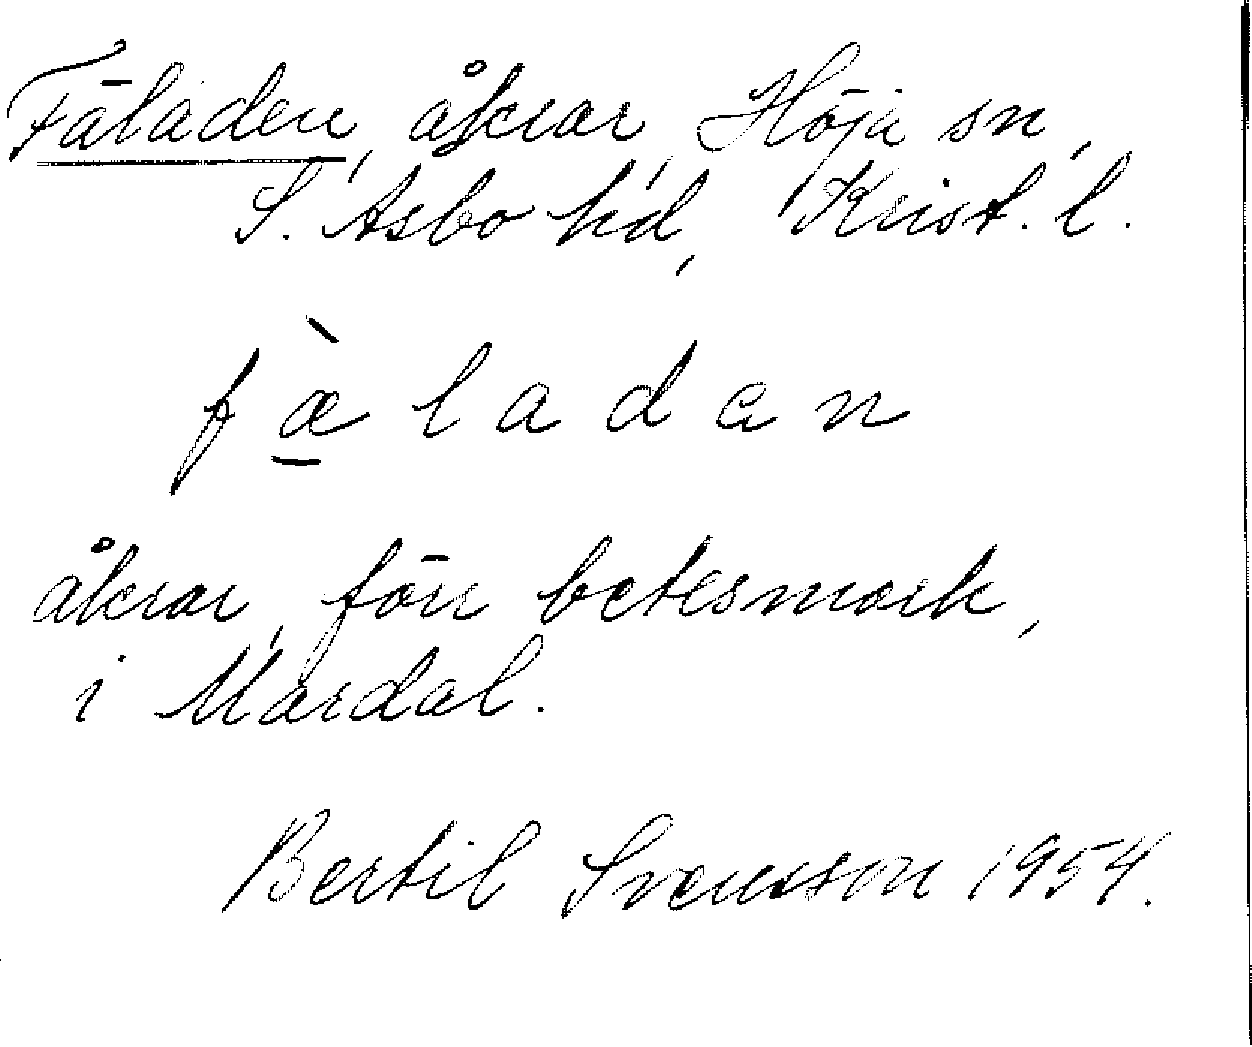 Fäladen, åkrar, Höja sn,
S. Åsbo hd, Krist. l.
f æ̀ l a d a n
åkrar, förr betesmark,
i Mardal.
Bertil Svensson 1954.